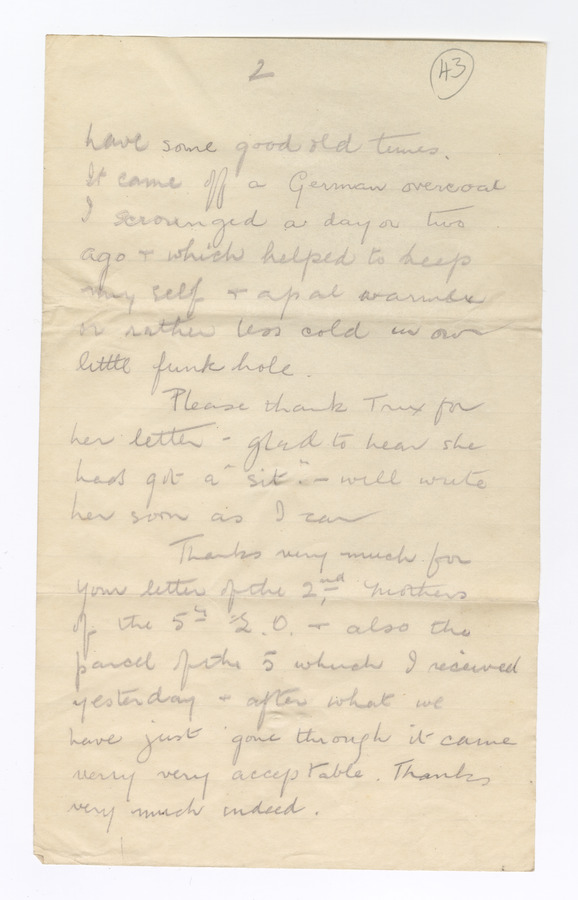 2
43
have some good old times.
It came off a German overcoat
I scrounged a day or two
ago + which helped to keep
my self + a pal warmer
or rather less cold in our
little funk hole.
Please thank Trix for
her letter - glad to hear she
has got a "sit." - will write
her soon as I can
Thanks very much for
your letter of the 2nd, Mothers
of the 5th &. O. + also the
parcel of the 5 which I received
yesterday + after what we
have just gone through it came
very very acceptable. Thanks
very much indeed.